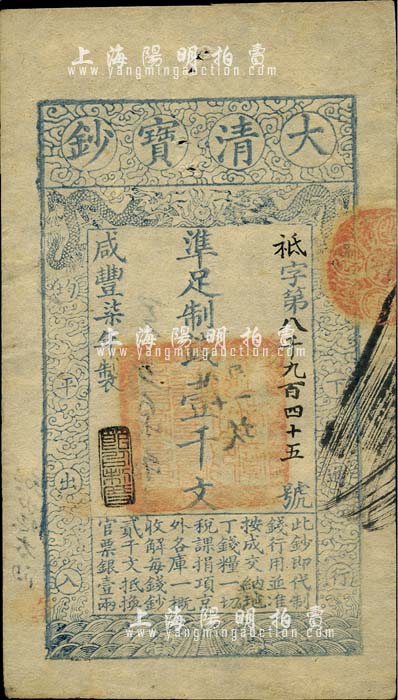 上海陽明拍賣
www.yangmingauction.com
大清寶鈔
祗字第八千九百四十五號
準足制錢壹千文
咸豐柒年製
天下通行
均平出入
此鈔即代制
錢行用並准
按成交納地
丁錢糧一切
稅課捐項京
外各庫一概
收解每錢鈔
貳千文抵換
官票銀壹兩
上海陽明拍賣
www.yangmingauction.com
上海陽明拍賣
www.yangmingauction.com